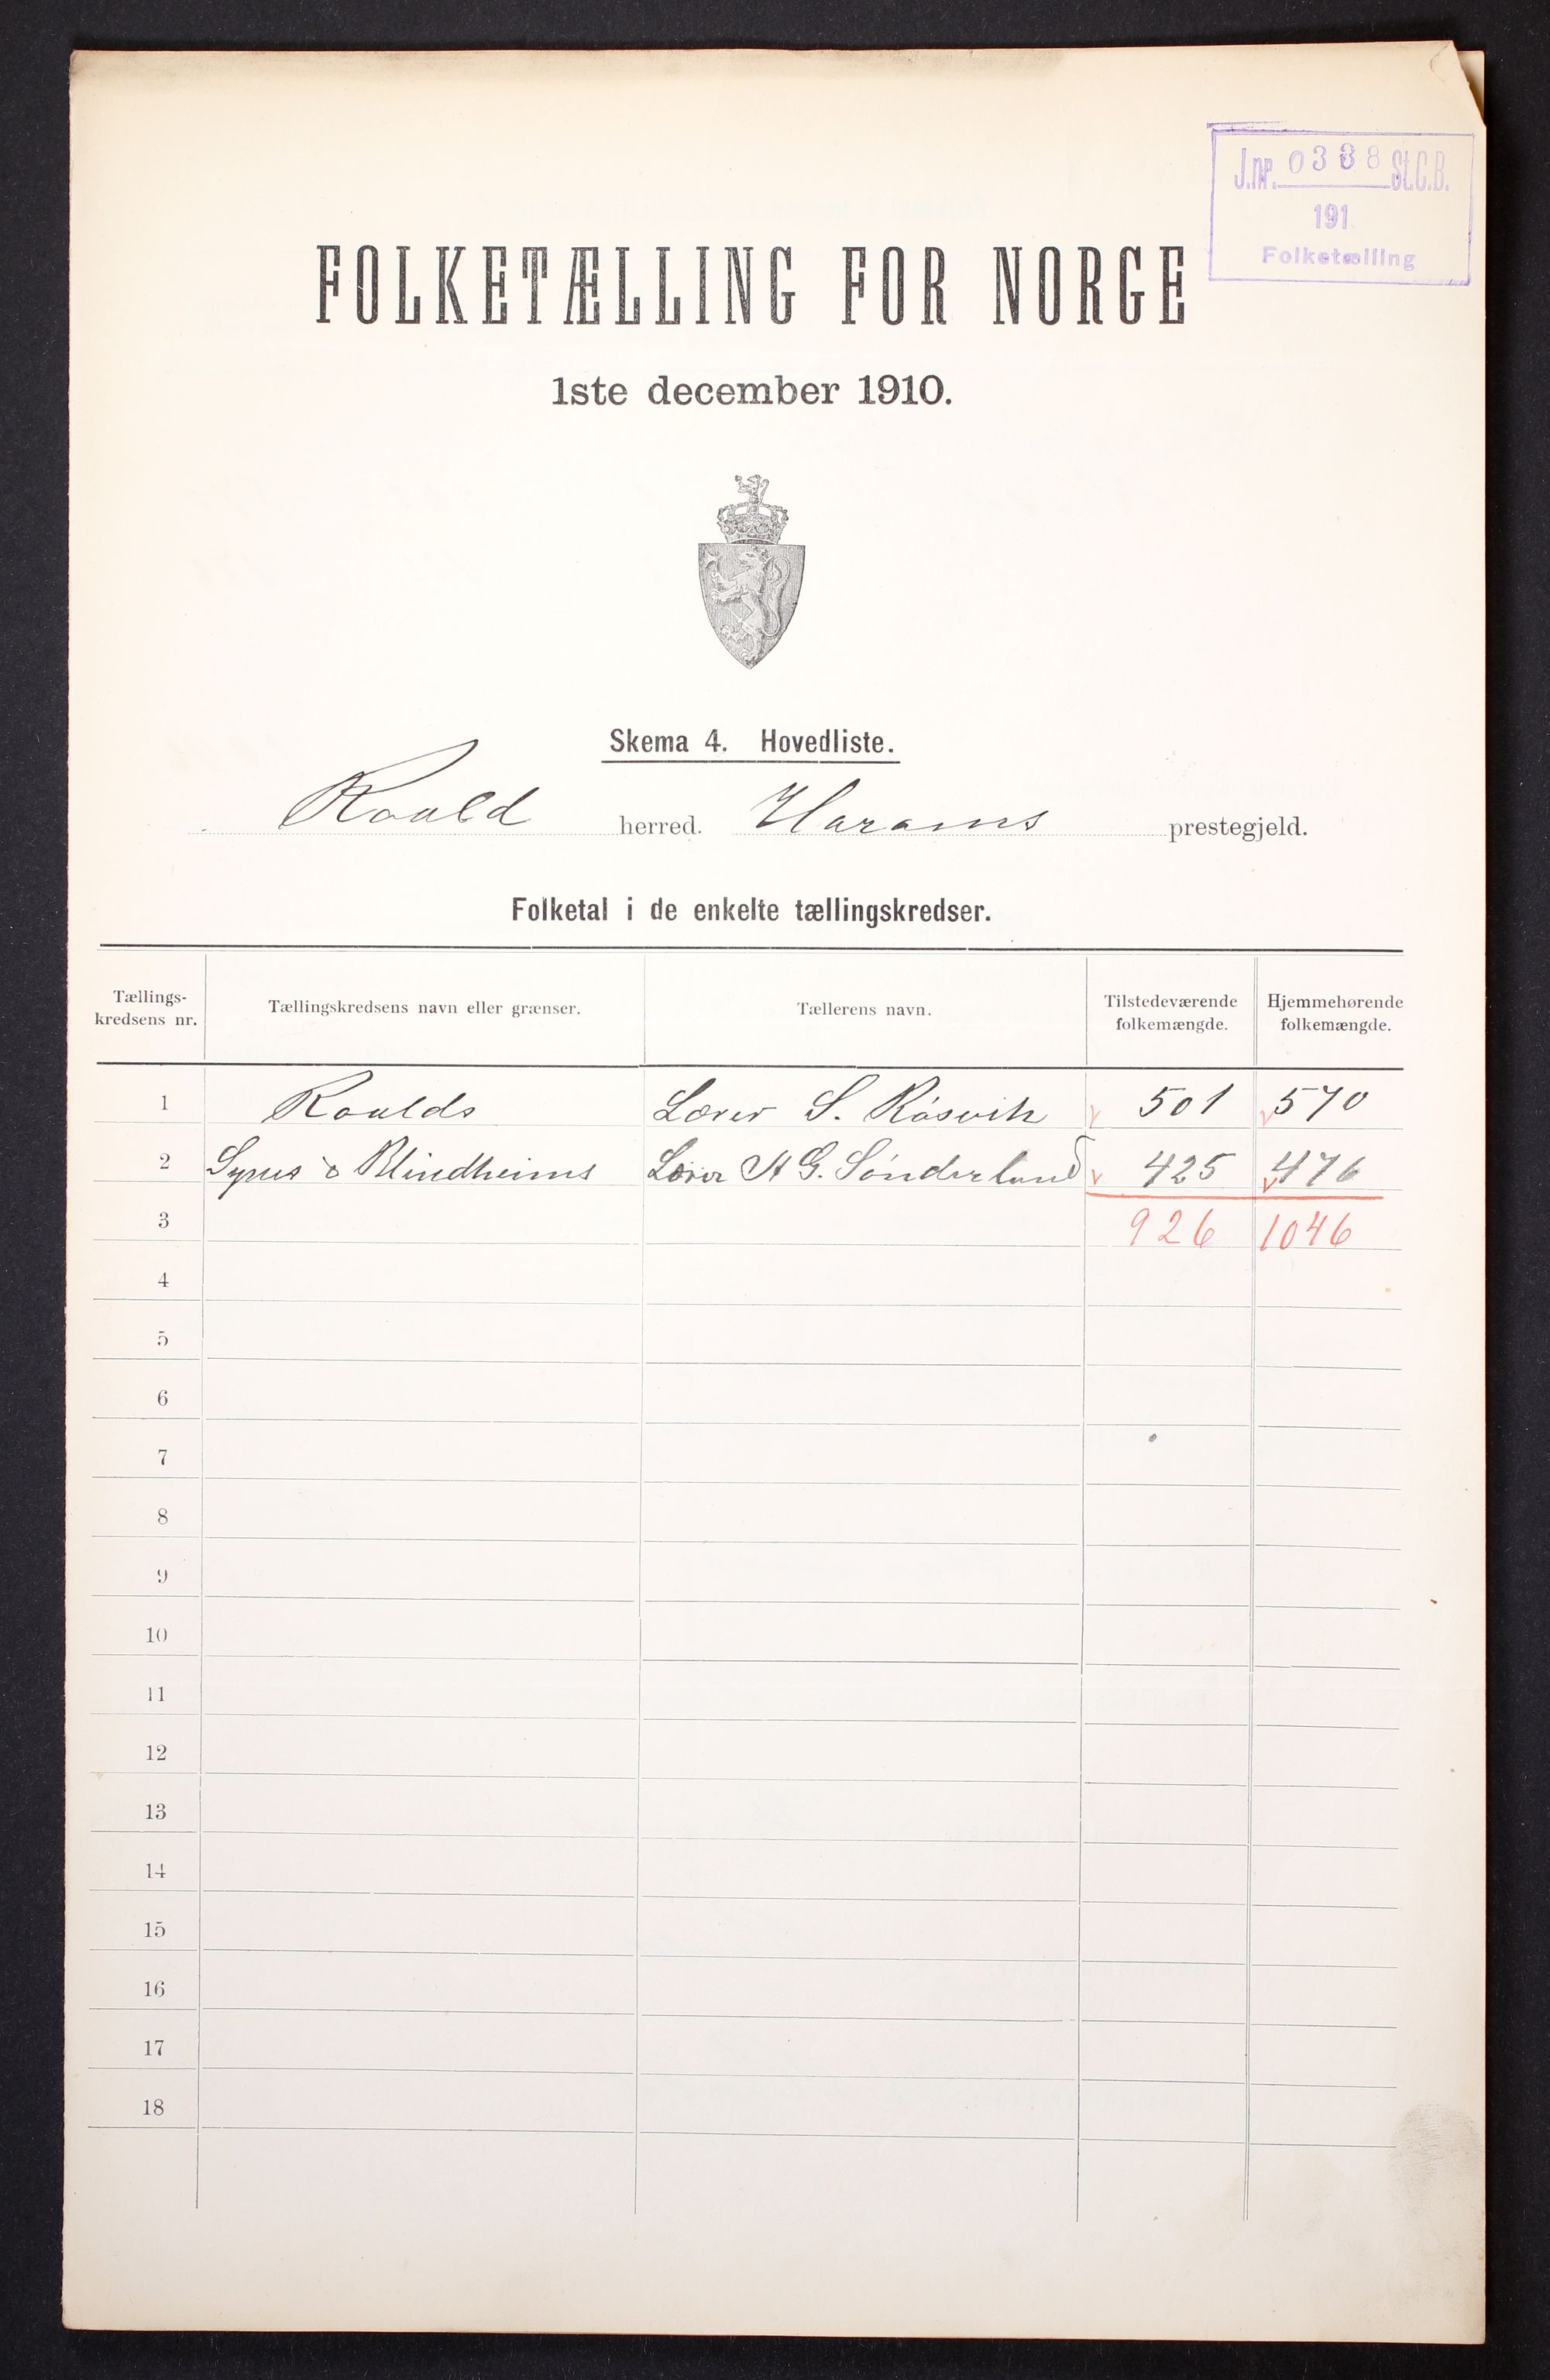 J.nr. 0338 St.C.B.
191
Folketælling
FOLKETÆLLING FOR NORGE
1ste december 1910.
Skema 4. Hovedliste.
Roald herred. Harams prestegjeld.
Folketal i de enkelte tællingskredser.
Tællings-kredsens nr. Tællingskredsens navn eller grænser. Tællerens navn. Tilstedeværende folkemængde. Hjemmehørende folkemængde.
1 Roalds Lærer S. Røsvik v 501 v 570
2 Synes & Blindheims Lærer A G. Sønderland v 425 v 476
3 926 1046
4
5
6
7
8
9
10
11
12
13
14
15
16
17
18